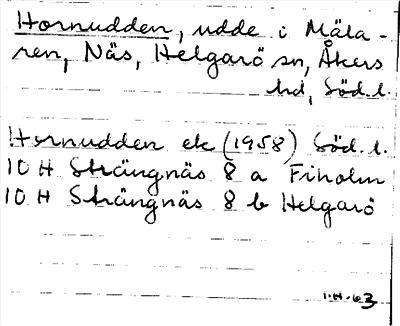 Hornudden, udde i Mäla-
ren, Näs, Helgarö sn, Åkers
hd, Söd. l.
Hornudden ek (1958) Söd. l.
10 H Strängnäs 8 a Fiholm
10 H Strängnäs 8 b Helgarö
1.H.63